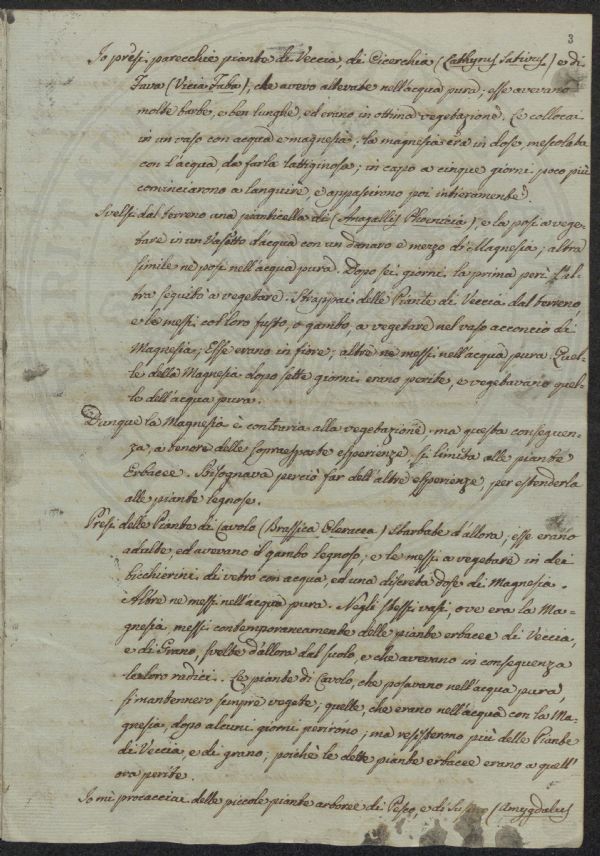 3
Io presi parecchie piante di Veccia, di Cicerchia (Lathyrus Sativus) e di
Fava (Vicia Faba), che avevo allevate nell'acqua pura; esse avevano
molte barbe, e ben lunghe, ed erano in ottima vegetazione. Le collocai
in un vaso con acqua e magnesia; la magnesia era in dose mescolata
con l'acqua da farla lattiginosa; in capo a cinque giorni poco più
cominciarono a languire, e appassirono poi intieramente.
Svelsi dal terreno una pianticella di (Anagallis Phoenicia), e la posi a vege-
tare in un Vasetto d'acqua con un danaro e mezzo di Magnesia; altra
simile ne posi nell'acqua pura. Dopo sei giorni la prima perì l'al-
tra seguitò a vegetare. Strappai delle Piante di Veccia dal terreno,
e le messi col loro fusto, o gambo, a vegetare nel vaso acconcio di
Magnesia; Esse erano in fiore; altre ne messi nell'acqua pura. Quel-
le della Magnesia dopo sette giorni erano perite, e vegetavano quel-
le dell'acqua pura.
Dunque la Magnesia è contraria alla vegetazione. ma questa conseguen-
za, a tenore delle sopraesposte esperienze si limita alle piante
Erbacee. Bisognava perciò far dell'altre esperienze, per estenderla
alle piante legnose.
Presi delle Piante di Cavolo (Brassica Oleracea) sbarbate d'allora; esse erano
adulte, ed avevano il gambo legnoso; e le messi a vegetare in dei
bicchierini di vetro con acqua, ed una discreta dose di Magnesia.
Altre ne messi nell'acqua pura. Negli stessi vasi, ove era la Ma-
gnesia messi contemporaneamente delle piante erbacee di Veccia,
e di Grano, svelte d'allora dal suolo, e che avevano in conseguenza
le loro radici. Le piante di Cavolo, che posavano nell'acqua pura,
si mantennero sempre vegete; quelle, che erano nell'acqua con la Ma-
gnesia, dopo alcuni giorni perirono; ma resisterono più delle Piante
di Veccia, e di grano; poichè le dette piante erbacee erano a quell'
ora perite.
Io mi procacciai delle piccole piante arboree di Pesco, e di (Amygdalus